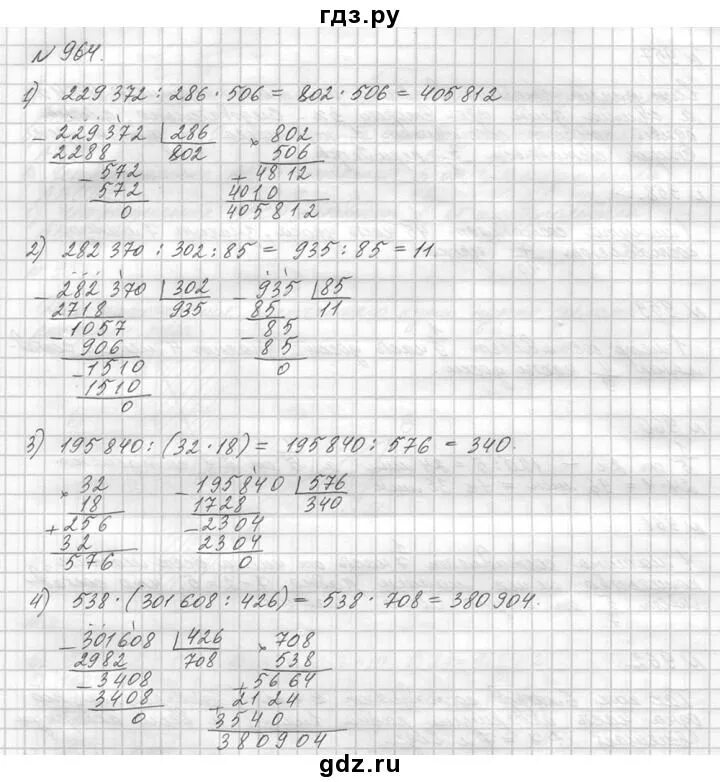 гдз.ру
№ 964.
1) 229 372 : 286 · 506 = 802 · 506 = 405812
- 229372 | 286 × 802
2288 802 506
- 572 + 4812
572 4010
0 405812
2) 282 370 : 302 : 85 = 935 : 85 = 11.
- 282 370 | 302 - 935 | 85
2718 935 85 11
- 1057 - 85
906 85
- 1510 0
1510
0
3) 195 840 : (32 · 18) = 195840 : 576 = 340.
× 32 - 195840 | 576
18 1728 340
+ 256 - 2304
32 2304
576 0
4) 538 · (301 608 : 426) = 538 · 708 = 380904.
- 301608 | 426 × 708
2982 708 538
- 3408 + 5664
3408 + 2124
0 3540
380904
gdz.ru